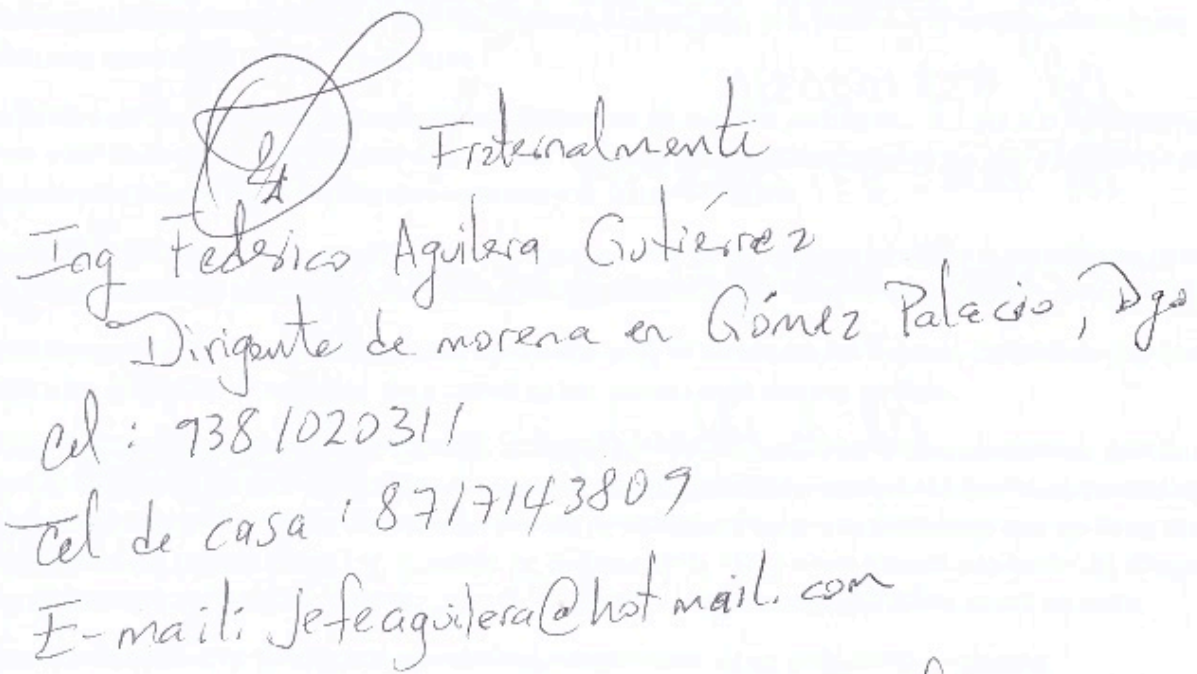 Fraternalmente
Ing Federico Aguilera Gutiérrez
Dirigente de morena en Gómez Palacio, Dgo
cel: 9381020311
Tel de casa: 8717143809
E-mail: jefeaguilera@hotmail.com